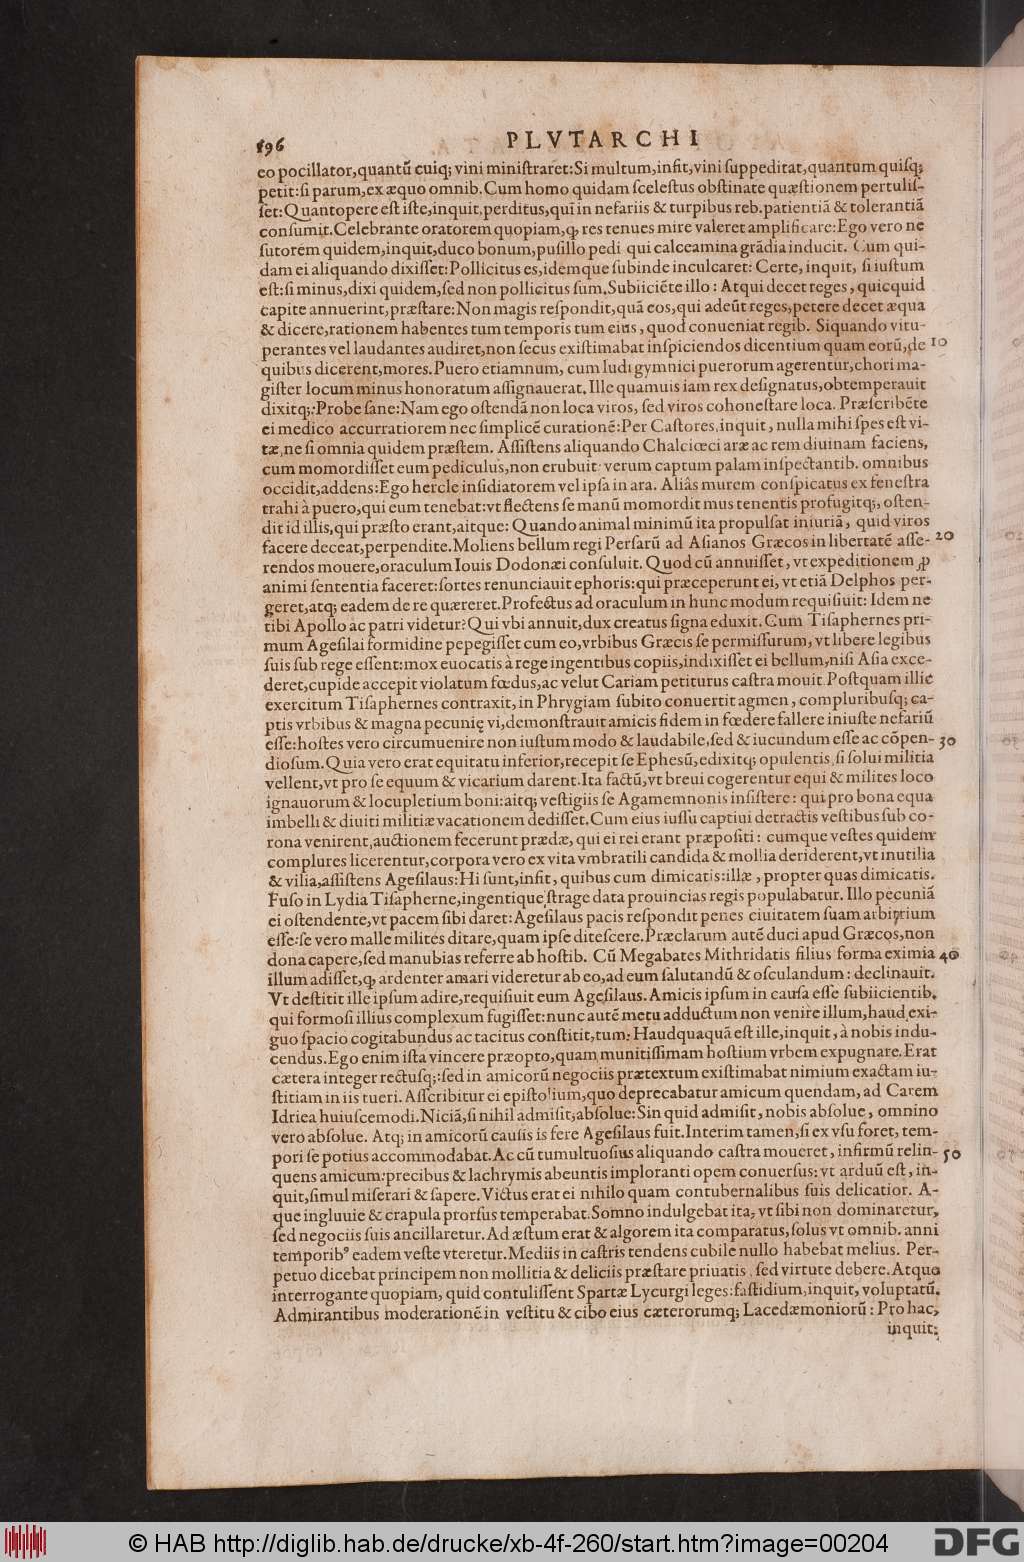 196
PLVTARCHI
eo pocillator,quantũ cuiq; vini miniſtraret:Si multum,inſit,vini ſuppeditat,quantum quiſq;
petit:ſi parum,ex æquo omnib.Cum homo quidam ſceleſtus obſtinate quæſtionem pertuliſ-
ſet:Quantopere eſt iſte,inquit,perditus,qui in nefariis & turpibus reb.patientiã & tolerantiã
conſumit.Celebrante oratorem quopiam,q̃ res tenues mire valeret amplificare:Ego vero ne
ſutorem quidem,inquit,duco bonum,puſillo pedi qui calceamina grãdia inducit. Cum qui-
dam ei aliquando dixiſſet:Pollicitus es,idemque ſubinde inculcaret: Certe, inquit, ſi iuſtum
eſt:ſi minus,dixi quidem,ſed non pollicitus ſum.Subiiciẽte illo: Atqui decet reges, quicquid
capite annuerint,præſtare:Non magis reſpondit,quã eos,qui adeũt reges,petere decet æqua
& dicere,rationem habentes tum temporis tum eius, quod conueniat regib. Siquando vitu-
perantes vel laudantes audiret,non ſecus exiſtimabat inſpiciendos dicentium quam eorũ,de 10
quibus dicerent,mores.Puero etiamnum, cum ludi gymnici puerorum agerentur,chori ma-
giſter locum minus honoratum aſſignauerat.Ille quamuis iam rex deſignatus,obtemperauit
dixitq;:Probe ſane:Nam ego oſtendã non loca viros, ſed viros cohoneſtare loca. Præſcribẽte
ei medico accurratiorem nec ſimplicẽ curationẽ:Per Caſtores,inquit, nulla mihi ſpes eſt vi-
tæ,ne ſi omnia quidem præſtem. Aſſiſtens aliquando Chalciœci aræ ac rem diuinam faciens,
cum momordiſſet eum pediculus,non erubuit: verum captum palam inſpectantib. omnibus
occidit,addens:Ego hercle inſidiatorem vel ipſa in ara. Aliâs murem conſpicatus ex feneſtra
trahi à puero,qui eum tenebat:vt flectens ſe manũ momordit mus tenentis profugitq;, oſten-
dit id illis,qui præſto erant,aitque: Quando animal minimũ ita propulſat iniuriã, quid viros
facere deceat,perpendite.Moliens bellum regi Perſarũ ad Aſianos Græcos in libertatẽ aſſe- 20
rendos mouere,oraculum Iouis Dodonæi conſuluit. Quod cũ annuiſſet, vt expeditionem ꝓ
animi ſententia faceret:ſortes renunciauit ephoris:qui præceperunt ei, vt etiã Delphos per-
geret,atq; eadem de re quæreret.Profectus ad oraculum in hunc modum requiſiuit: Idem ne
tibi Apollo ac patri videtur?Qui vbi annuit,dux creatus ſigna eduxit.Cum Tiſaphernes pri-
mum Ageſilai formidine pepegiſſet cum eo,vrbibus Græcis ſe permiſſurum, vt libere legibus
ſuis ſub rege eſſent:mox euocatis à rege ingentibus copiis,indixiſſet ei bellum,niſi Aſia exce-
deret,cupide accepit violatum fœdus,ac velut Cariam petiturus caſtra mouit.Poſtquam illic
exercitum Tiſaphernes contraxit,in Phrygiam ſubito conuertit agmen, compluribuſq; ca-
ptis vrbibus & magna pecunię vi,demonſtrauit amicis fidem in fœdere fallere iniuſte nefariũ
eſſe:hoſtes vero circumuenire non iuſtum modo & laudabile,ſed & iucundum eſſe ac cõpen- 30
dioſum.Quia vero erat equitatu inferior,recepit ſe Epheſũ,edixitq; opulentis,ſi ſolui militia
vellent,vt pro ſe equum & vicarium darent.Ita factũ,vt breui cogerentur equi & milites loco
ignauorum & locupletium boni:aitq; veſtigiis ſe Agamemnonis inſiſtere: qui pro bona equa
imbelli & diuiti militiæ vacationem dediſſet.Cum eius iuſſu captiui detractis veſtibus ſub co-
rona venirent,auctionem fecerunt prædæ, qui ei rei erant præpoſiti: cumque veſtes quidem
complures licerentur,corpora vero ex vita vmbratili candida & mollia deriderent,vt inutilia
& vilia,aſſiſtens Ageſilaus:Hi ſunt,inſit, quibus cum dimicatis:illæ, propter quas dimicatis.
Fuſo in Lydia Tiſapherne,ingentique ſtrage data prouincias regis populabatur. Illo pecuniã
ei oſtendente,vt pacem ſibi daret:Ageſilaus pacis reſpondit penes ciuitatem ſuam arbitrium
eſſe:ſe vero malle milites ditare,quam ipſe diteſcere.Præclarum autẽ duci apud Græcos,non
dona capere,ſed manubias referre ab hoſtib. Cũ Megabates Mithridatis filius forma eximia 40
illum adiſſet,q̃ ardenter amari videretur ab eo,ad eum ſalutandũ & oſculandum: declinauit.
Vt deſtitit ille ipſum adire,requiſiuit eum Ageſilaus.Amicis ipſum in cauſa eſſe ſubiicientib.
qui formoſi illius complexum fugiſſet:nunc autẽ metu adductum non venire illum,haud exi-
guo ſpacio cogitabundus ac tacitus conſtitit,tum: Haudquaquã eſt ille,inquit, à nobis indu-
cendus.Ego enim iſta vincere præopto,quam munitiſſimam hoſtium vrbem expugnare.Erat
cætera integer rectuſq;:ſed in amicorũ negociis prætextum exiſtimabat nimium exactam iu-
ſtitiam in iis tueri. Aſſcribitur ei epiſtolium,quo deprecabatur amicum quendam, ad Carem
Idriea huiuſcemodi.Niciã,ſi nihil admiſit,abſolue:Sin quid admiſit, nobis abſolue, omnino
vero abſolue. Atq; in amicorũ cauſis is fere Ageſilaus fuit.Interim tamen,ſi ex vſu foret, tem-
pori ſe potius accommodabat.Ac cũ tumultuoſius aliquando caſtra moueret, infirmũ relin- 50
quens amicum:precibus & lachrymis abeuntis imploranti opem conuerſus: vt arduũ eſt, in-
quit,ſimul miſerari & ſapere.Victus erat ei nihilo quam contubernalibus ſuis delicatior. A-
que ingluuie & crapula prorſus temperabat.Somno indulgebat ita, vt ſibi non dominaretur,
ſed negociis ſuis ancillaretur.Ad æſtum erat & algorem ita comparatus,ſolus vt omnib. anni
temporibꝰ eadem veſte vteretur.Mediis in caſtris tendens cubile nullo habebat melius. Per-
petuo dicebat principem non mollitia & deliciis præſtare priuatis, ſed virtute debere.Atquo
interrogante quopiam, quid contuliſſent Spartæ Lycurgi leges:faſtidium,inquit, voluptatũ.
Admirantibus moderationẽ in veſtitu & cibo eius cæterorumq; Lacedæmoniorũ: Pro hac,
inquit:
© HAB http://diglib.hab.de/drucke/xb-4f-260/start.htm?image=00204
DFG